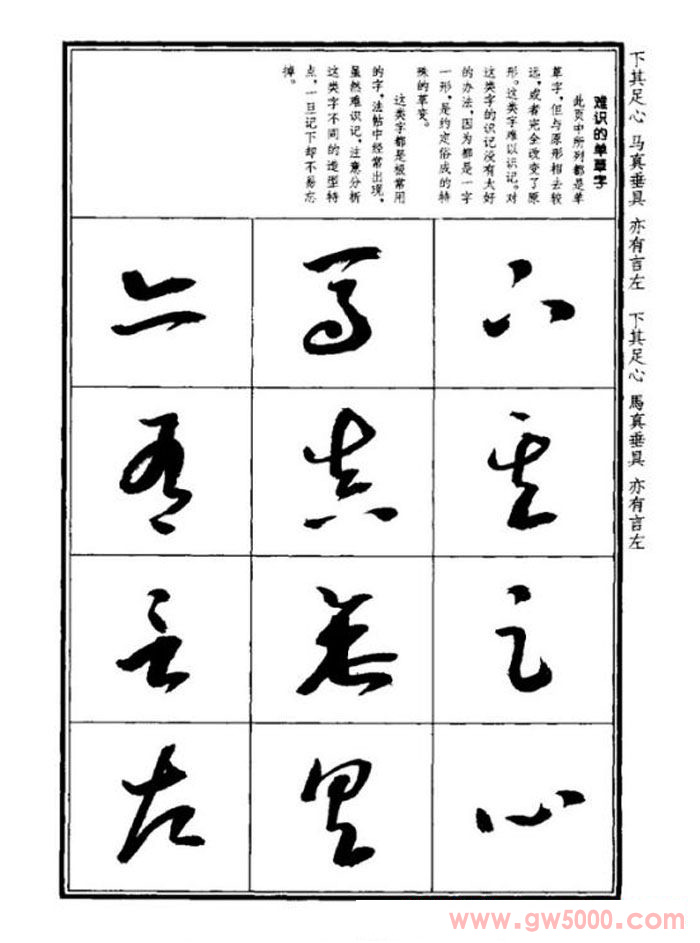 下其足心 马真垂具 亦有言左 下其足心 馬真垂具 亦有言左
难识的单草字
此页中所列都是单
草字,但与原形相去较
远,或者完全改变了原
形。这类字难以识记。对
这类字的识记没有太好
的办法,因为都是一字
一形,是约定俗成的特
殊的草变。
这类字都是极常用
的字,法帖中经常出现,
虽然难识记,注意分析
这类字不同的造型特
点,一旦记下却不易忘
掉。
下其足心
马真垂具
亦有言左
www.gw5000.com